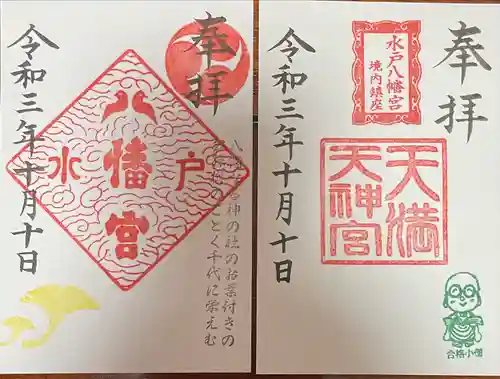 奉拝
八幡宮
水戸
の社のお葉付きの
のごとく千代に栄えむ
令和三年十月十日
奉拝
水戸八幡宮
境内鎮座
天満
天神宮
合格小僧
令和三年十月十日